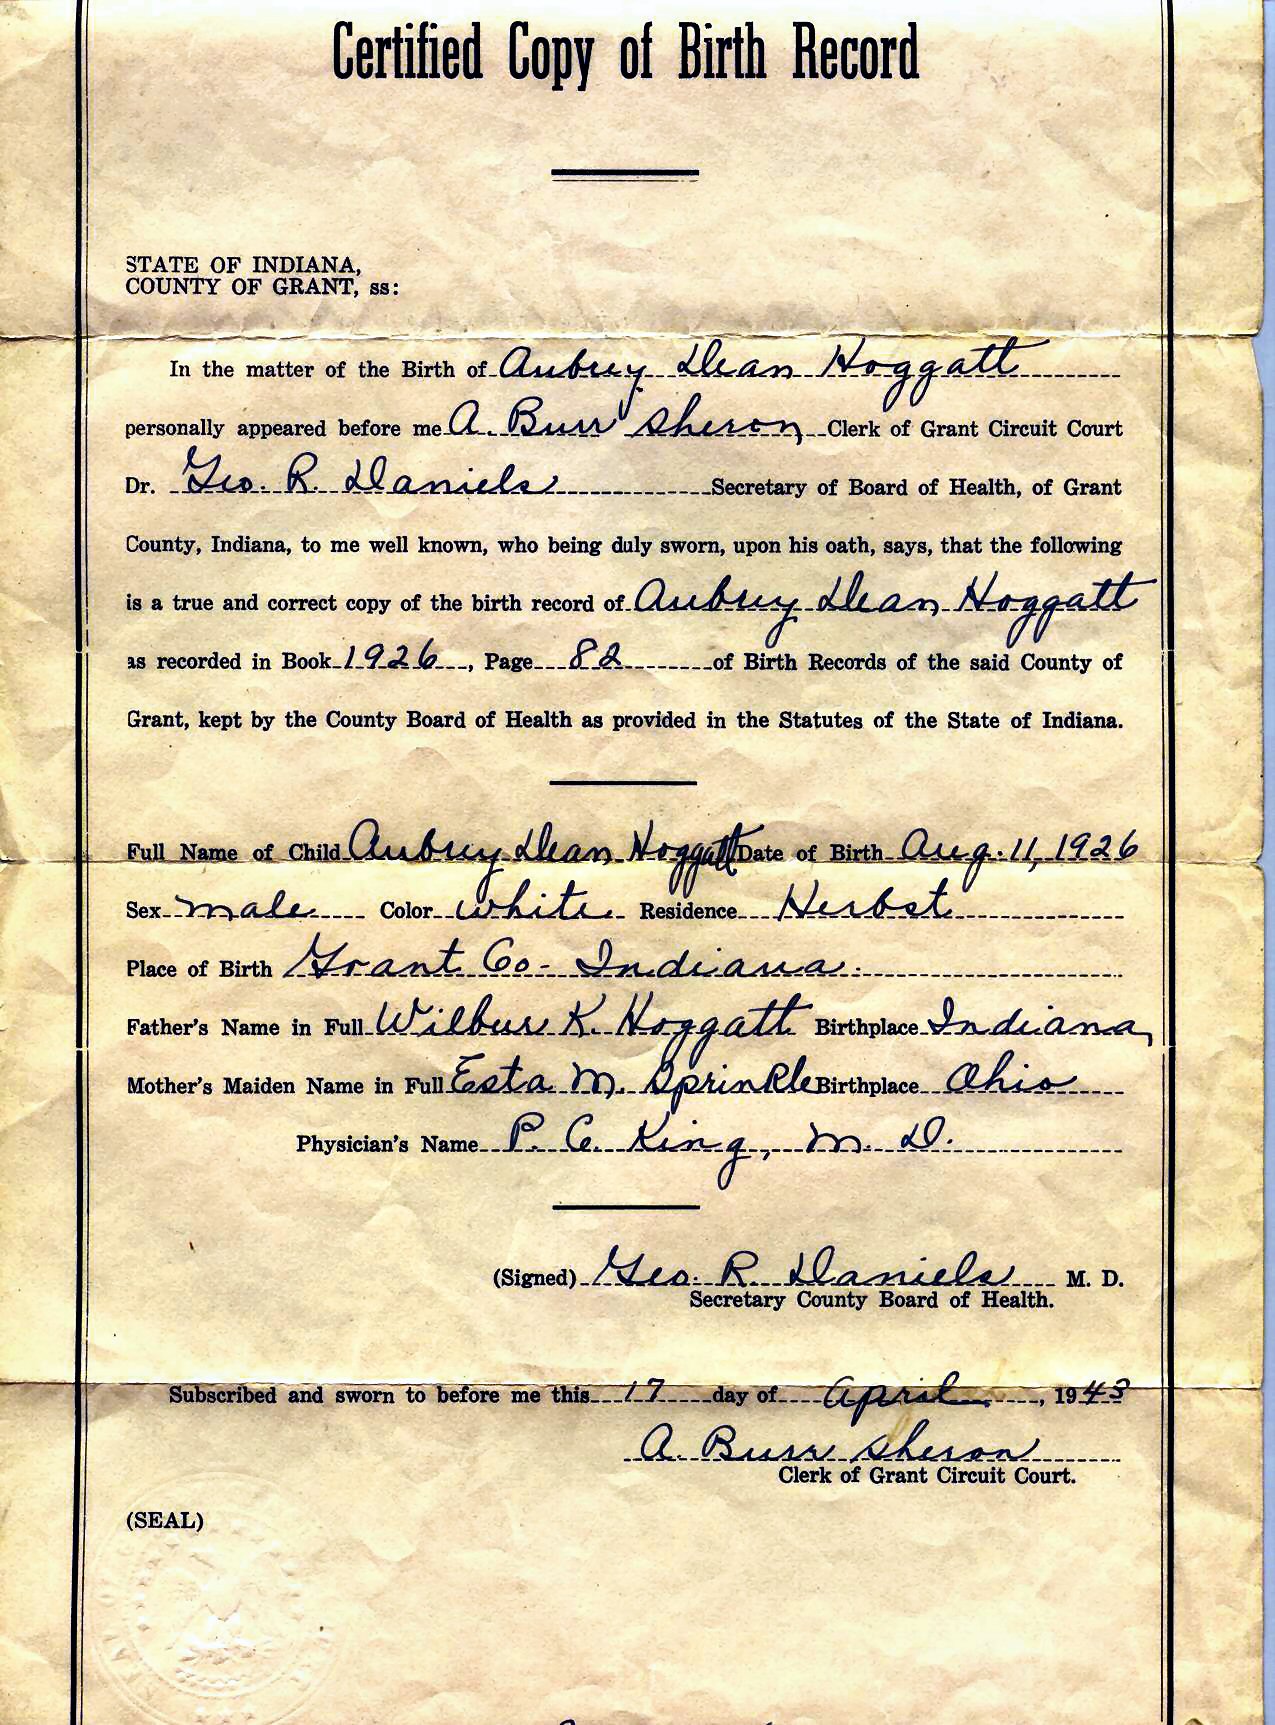 Certified Copy of Birth Record
STATE OF INDIANA,
COUNTY OF GRANT, ss:
In the matter of the Birth of Aubrey Dean Hoggatt
personally appeared before me A. Burr Sheron Clerk of Grant Circuit Court
Dr. Geo. R. Daniels Secretary of Board of Health, of Grant
County, Indiana, to me well known, who being duly sworn, upon his oath, says, that the following
is a true and correct copy of the birth record of Aubrey Dean Hoggatt
as recorded in Book 1926, Page 82 of Birth Records of the said County of
Grant, kept by the County Board of Health as provided in the Statutes of the State of Indiana.
Full Name of Child Aubrey Dean Hoggatt Date of Birth Aug. 11, 1926
Sex male Color white Residence Herbst
Place of Birth Grant Co- Indiana.
Father's Name in Full Wilbur K. Hoggatt Birthplace Indiana,
Mother's Maiden Name in Full Esta M. Sprinkle Birthplace Ohio
Physician's Name P. C. King, M. D.
(Signed) Geo. R. Daniels M. D.
Secretary County Board of Health.
Subscribed and sworn to before me this 17 day of April, 1943
A. Burr Sheron
Clerk of Grant Circuit Court.
(SEAL)